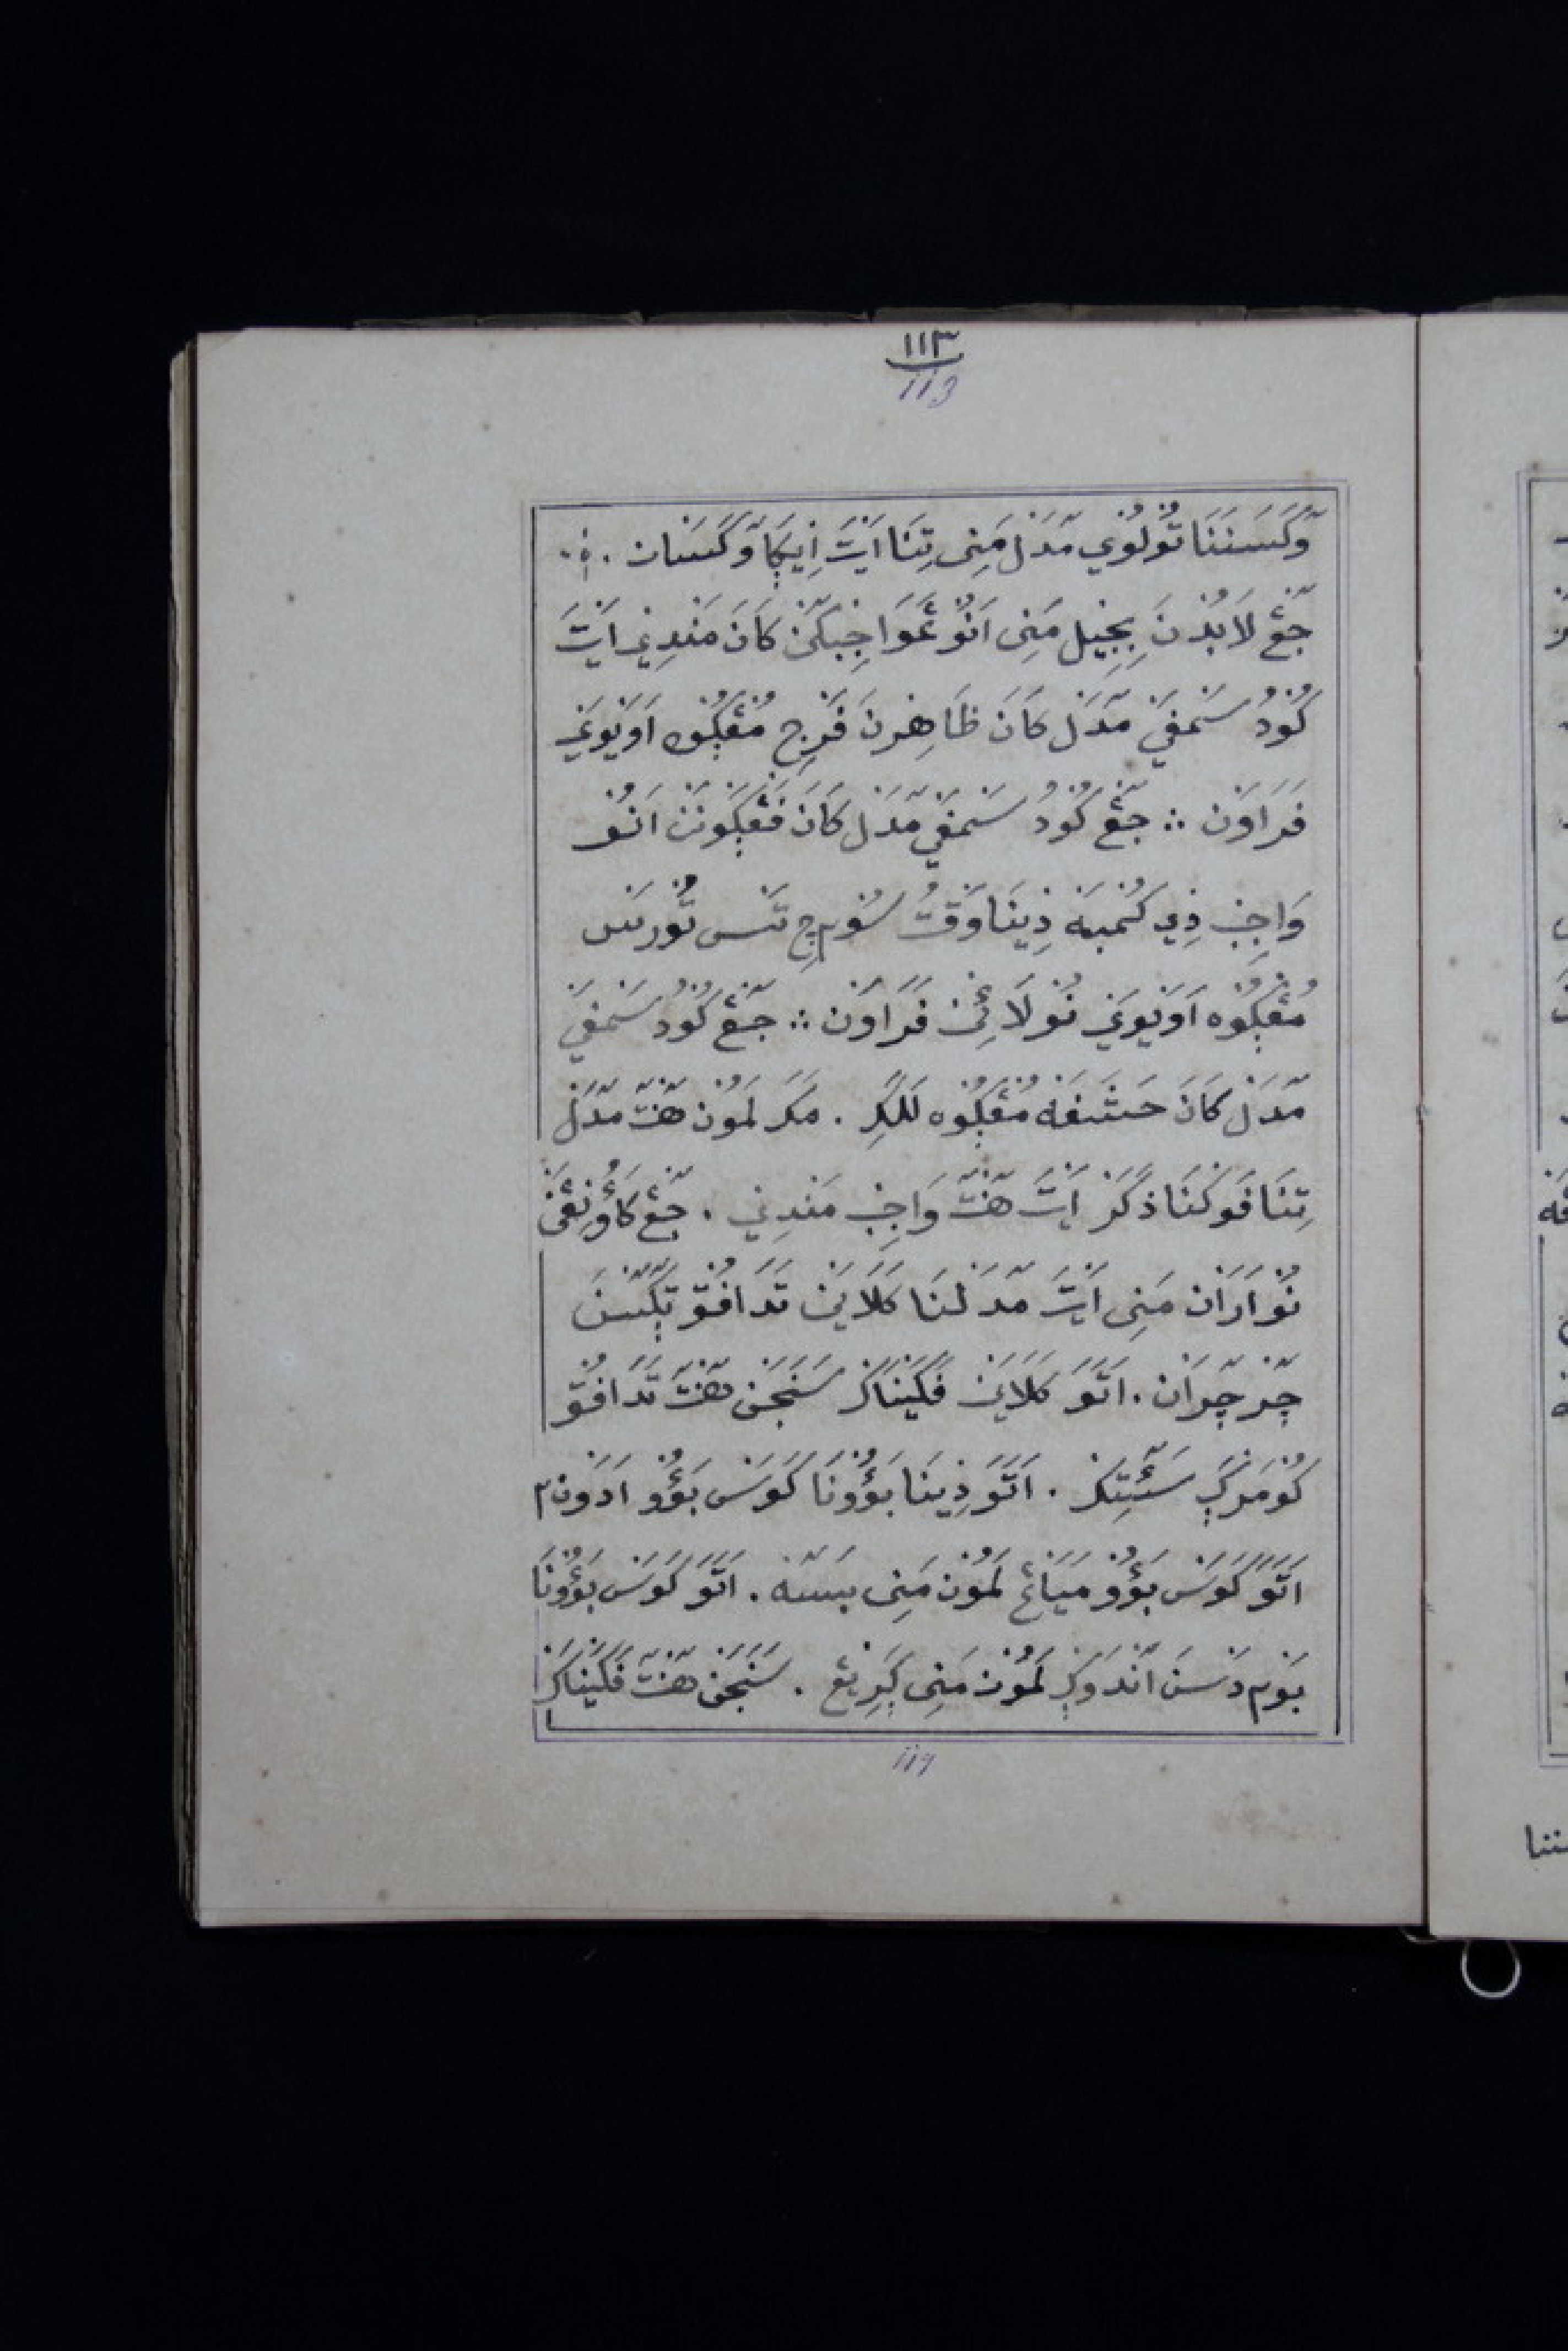 ١١٣
113
وَّكَسَنْنَا تُوْلُوْيِ مَّدَلْ مَنِى تِنَا اَيْتَ اِيْڮَا وَّكَسَنَان
جَّڠْ لَابُدْنَ بِجِيْل مَنِى اَنُوْ عَّوَاجِبَّكَنْ كَانَ مَنْدِيْ اَيْتَ
كُوْدُ سَمْڤَيْ مَّدَلْ كَانَ ظَاهِرْنَ فَرْجِ مُڠْڮُوْه اَوَيْوَيْ
فَرَاوَن ؞ جَّڠْ كُوْدُ سَمْڤَيْ مَّدَلْ كَانَ فَڠْڮَوْنَنْ اَنُوْ
وَاجِبْ دِيْ كُمْبَهْ دِيْنَا وَقْتُ سُوْچِ تَّس تُوْرَس
مُڠْڮُوْه اَوَيْوَيْ نُوْ لَائِنْ فَرَاوَن ؞ جَّڠْ كُوْدُ سَمْڤَيْ
مَّدَلْ كَانَ حَشَفَهْ مُڠْڮُوْه لَلَڮِ . مَكَ لَمُوْن هَنْتّ مَّدَلْ
تِنَا فَوْكَنَا ذَكَرْ اَيْتَ هَنْتّ وَاجِبْ مَنْدِيْ . جَّڠْ كَاؤُنِڠَنْ
نُوْ اَرَان مَنِى اَيْتَ مَّدَلْنَا كَلَايَنْ تَدَافُقْ تَڮَّسْنَ
چَّرْچَرَان . اَتَوَ كَلَايَنْ فَلَيْنَاكَرْ سَنَجَنْ هَنْتّ تَدَافُقْ
كُوْمَرْڮَ سَّئَتِكْ . اَتَوَ دِيْنَا بَؤُوْنَا كَوَسْ بَؤُوْ اَدَوْن٢
اَتَوَ كَوَسْ بَؤُوْ مَيَاڠْ لَمُوْن مَنِى بَسَّهْ . اَتَوَ كَوَسْ بَؤُوْنَا
بَوْم دَسَنْ اَنْدَوَّڮْ لَمُوْن مَنِى ڮَرِيْڠ . سَنَجَنْ هَنْتّ فَلَيْنَاكَرْ
119